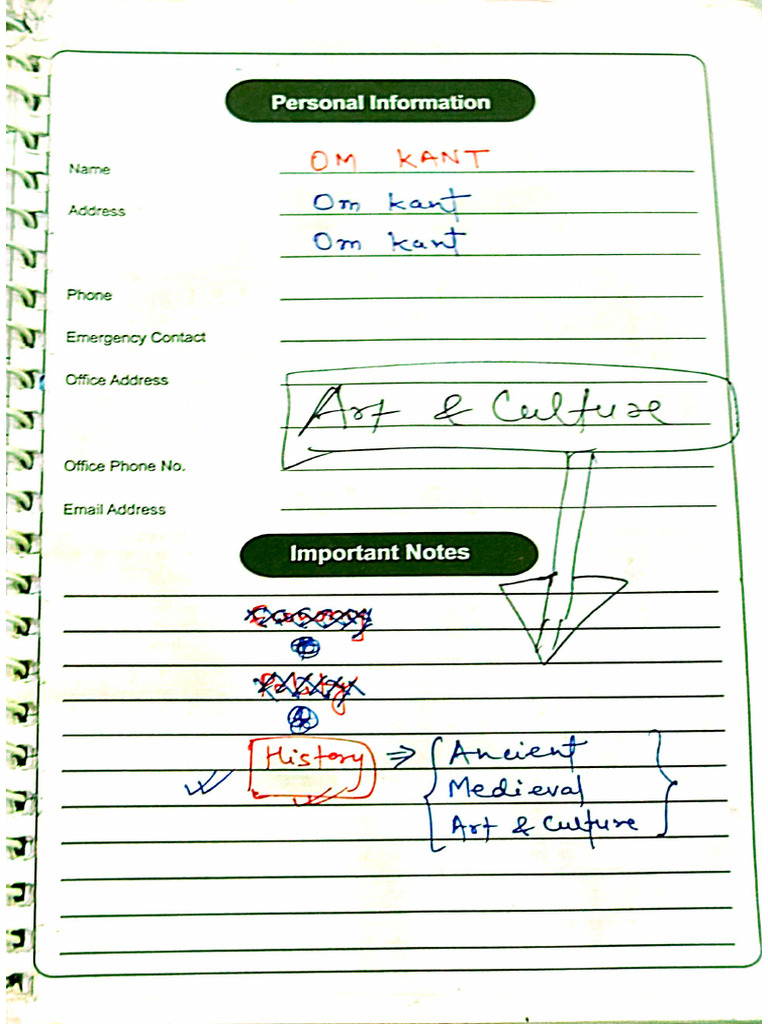 Personal Information
Name OM KANT
Address Om kant
Om kant
Phone
Emergency Contact
Office Address
Art & Culture
Office Phone No.
Email Address
Important Notes
Economy
Polity
History ⇒ { Ancient
Medieval
Art & Culture }